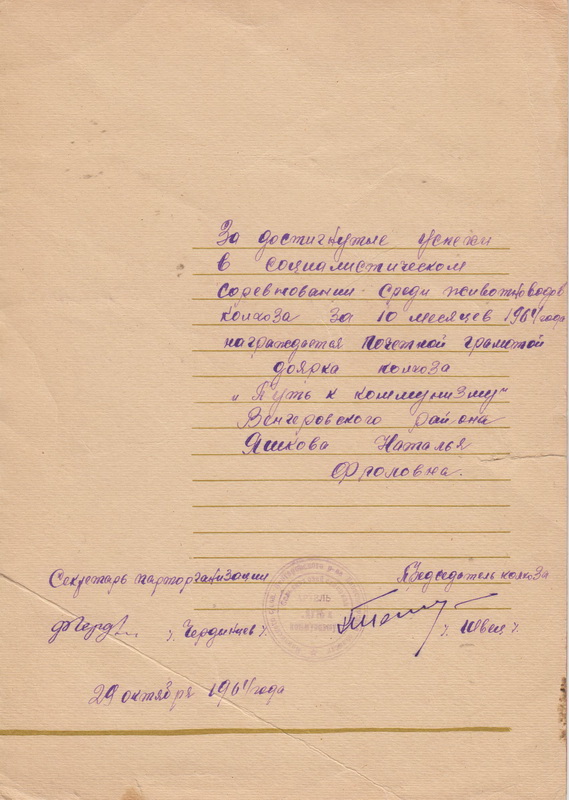 За достигнутые успехи
в социалистическом
соревновании среди животноводов
колхоза за 10 месяцев 1964 года
награждается почетной грамотой
доярка колхоза
„Путь к коммунизму“
Венгеровского района
Яшкова Наталья
Фроловна.
Секретарь парторганизации Председатель колхоза
/. Чердынцев /. /. Швец /.
29 октября 1964 года